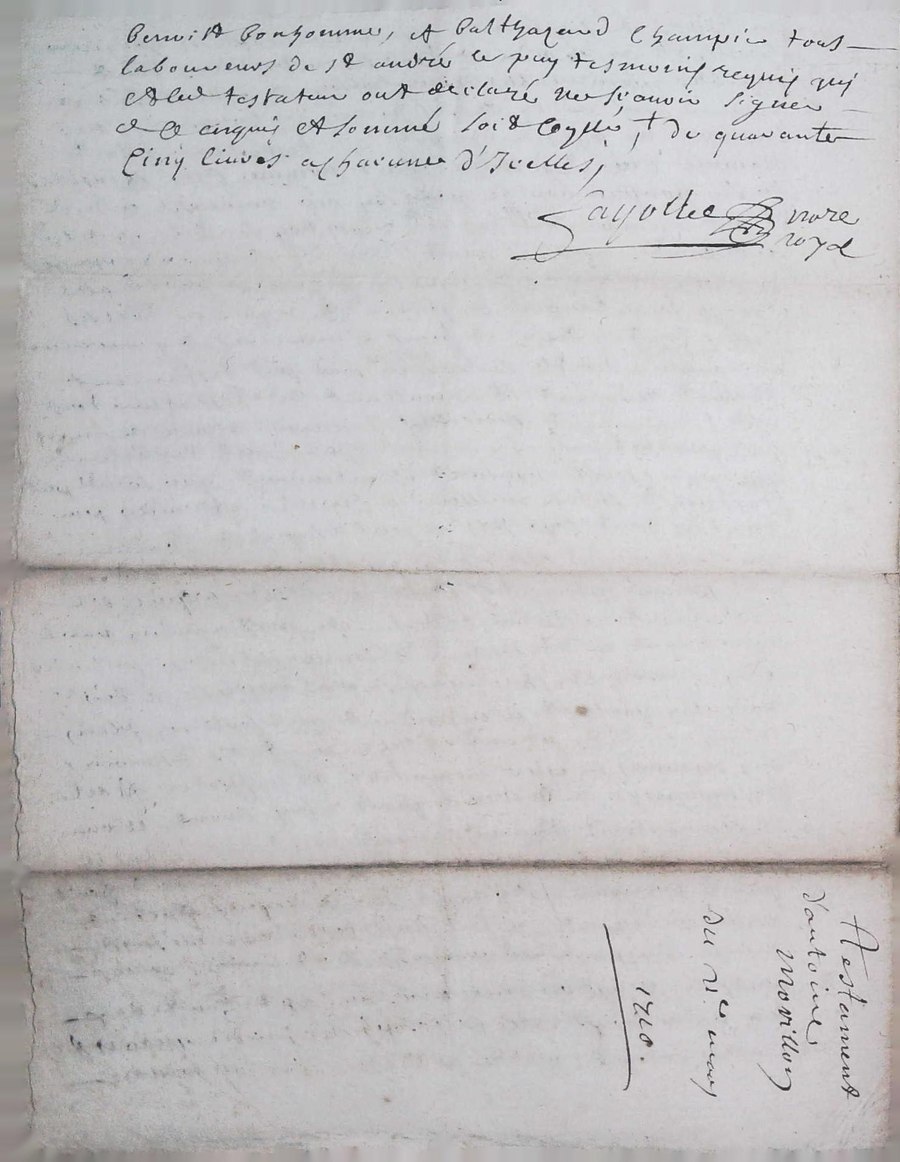 benoist bonhomme, et balthazard Champin tous
laboureurs de st andré le puy tesmoins requis qui
et led testateur ont declaré ne scavoir signer
de ce enquis et sommé soit Coyllé, + de quarante
Cinq livres a chacune d'Icelles,
nore
royal
testament
d'antoine
Movillon
du may
1710.